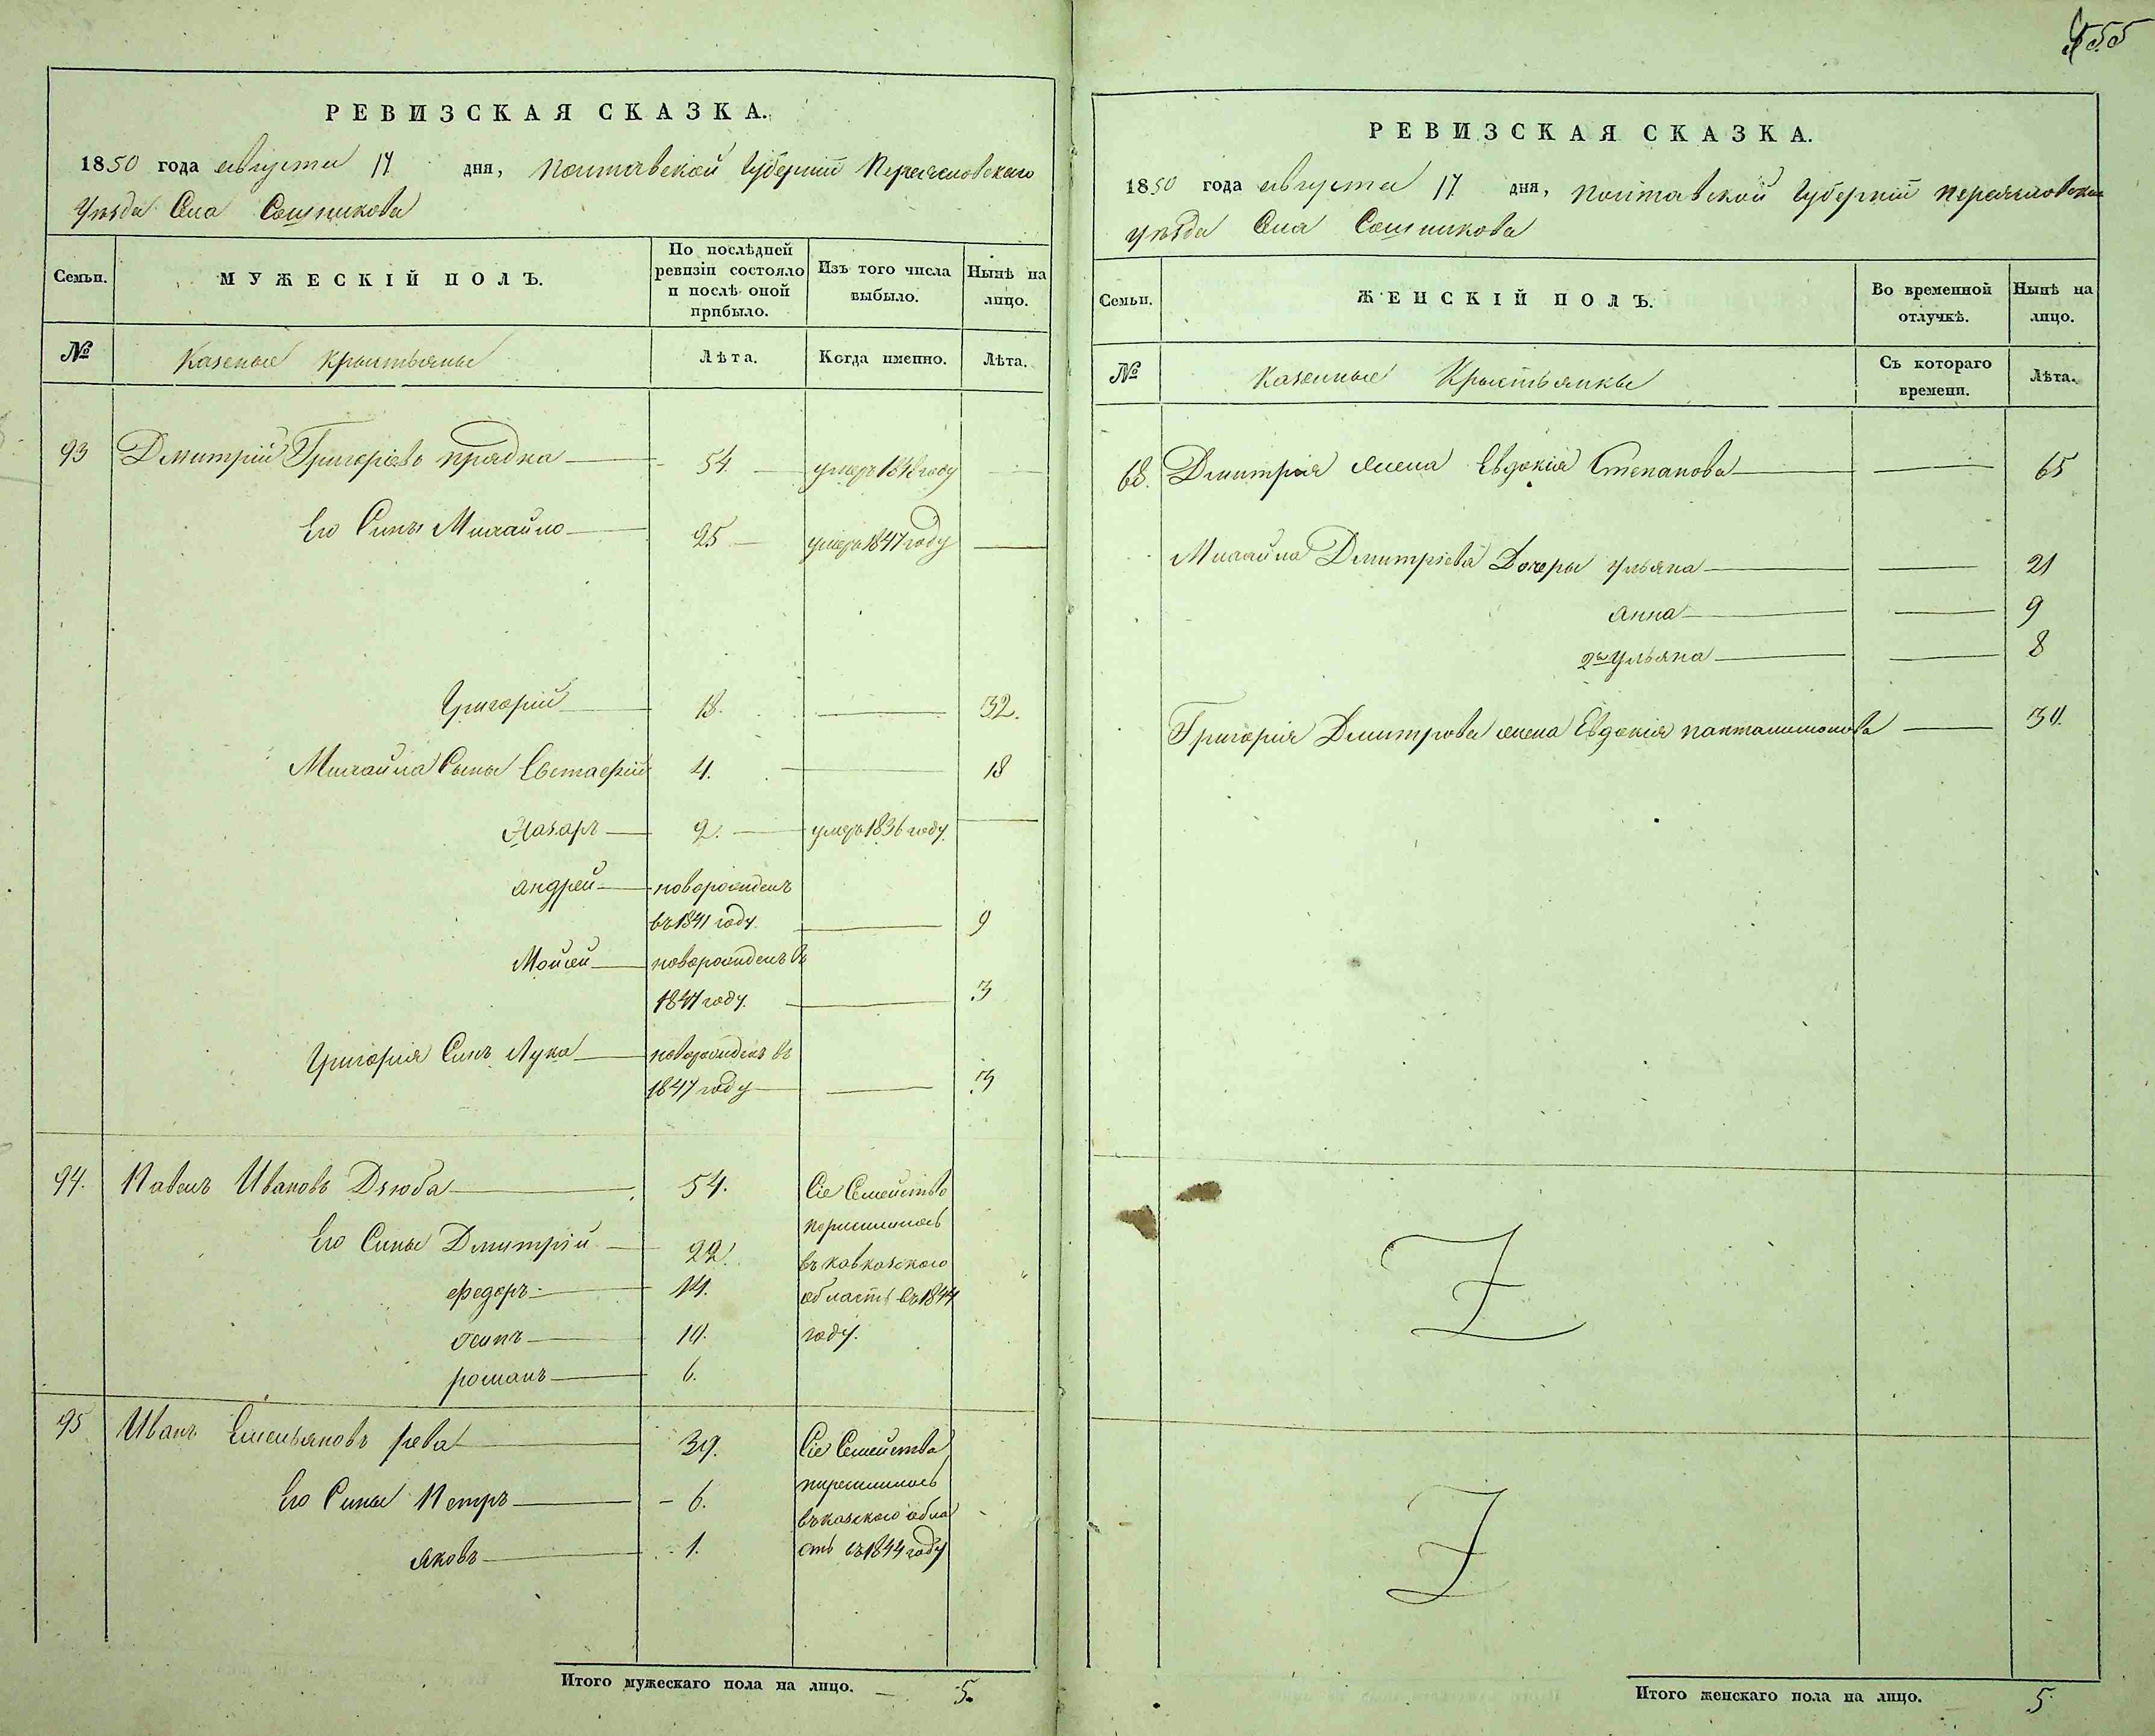 555
РЕВИЗСКАЯ СКАЗКА.
1850 года августа 17 дня, Полтавской Губерніи Переясловскаго
Уѣзда Села Сошникова
Семьи.
МУЖЕСКІЙ ПОЛЪ.
По послѣдней ревизіи состояло и послѣ оной прибыло.
Изъ того числа выбыло.
Нынѣ на лицо.
№
Казеные Крестьяные
Лѣта.
Когда именно.
Лѣта.
93 Дмитрій Григоріевъ прядка 54. умеръ 1848 году
Его Синъ Михайло 25 умеръ 1847 году
Григорій 18. 32.
Михайла Сыны Евстафій 4. 18
Назаръ 2. умеръ 1836 году
андрей новорожденъ
въ 1841 году. 9
Мойсей новорожденъ въ
1847 году. 3
Григорія Синъ Лука новорожденъ въ
1847 году 3
94. Павелъ Ивановъ Дзюба 54. Сіе Семейство
переселилось
Его Сины Дмитрій 22. въ кавказского
федоръ 14. область въ 1844
осипъ 10. году.
романъ 6.
95 Иванъ Емельяновъ рева 39. Сіе Семейства
переселилось
Его Сины Петръ 6. въ казского обла
яковъ 1. сть въ 1844 году
Итого мужескаго пола на лицо. 5.
РЕВИЗСКАЯ СКАЗКА.
1850 года августа 17 дня, Полтавской Губерніи переясловска
уѣзда Села Сошникова
Семьи.
ЖЕНСКІЙ ПОЛЪ.
Во временной отлучкѣ.
Нынѣ на лицо.
№
Казенные Крестьянкы
Съ котораго времени.
Лѣта.
68. Дмитрія жена Евдокія Степанова 65
Михайла Дмитріева Дочеры ульяна 21
анна 9
2я ульяна 8
Григорія Дмитрова жена Евдокія панталимонова 30.
Итого женскаго пола на лицо. 5